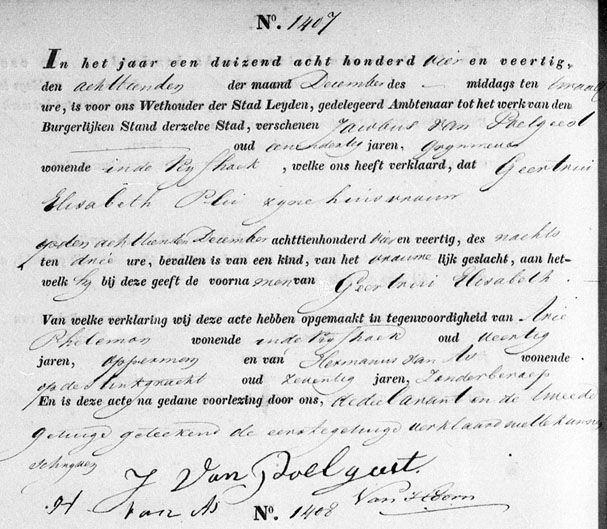 No. 1407
In het jaar een duizend acht honderd vier en veertig,
den achttienden der maand December des – middags ten twaalf
ure, is voor ons Wethouder der Stad Leyden, gedelegeerd Ambtenaar tot het werk van den
Burgerlijken Stand derzelve Stad, verschenen Jacobus van Poelgeest
oud een en dertig jaren,
wonende in de , welke ons heeft verklaard, dat Geertrui
Elisabeth Plu zyne huisvrouw
op den achttienden December achttienhonderd vier en veertig, des nachts
ten drie ure, bevallen is van een kind, van het vrouwelijk geslacht, aan het-
welk hy bij deze geeft de voornamen van Geertrui Elisabeth.
Van welke verklaring wij deze acte hebben opgemaakt in tegenwoordigheid van Arie
wonende in de oud veertig
jaren, opperman en van Hermanus van As wonende
op de oud zeventig jaren, zonder beroep
En is deze acte na gedane voorlezing door ons, declarant en de tweede
getuige geteekend de eerste getuige verklaard niet te kunnen
schryven
J Van Poelgeest.
H van As
No. 1408